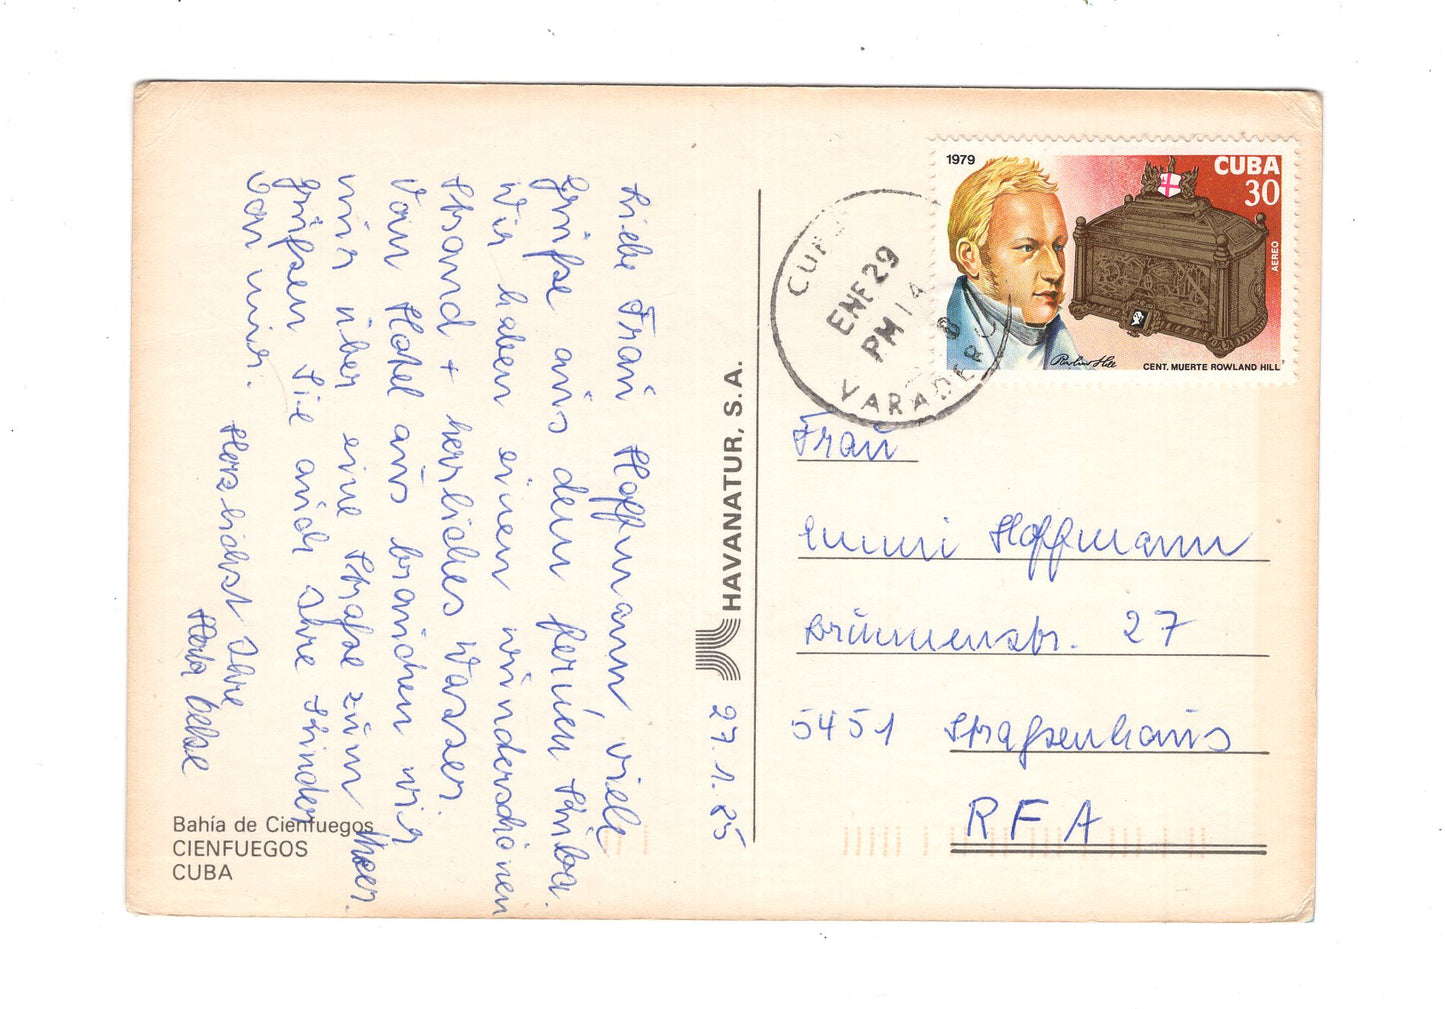 Liebe Frau Hoffmann, viele
Grüße aus dem fernen Kuba.
Wir haben einen wunderschönen
Strand + herrliches Wasser.
Vom Hotel aus brauchen wir
nur über eine Straße zum Meer.
Grüßen Sie auch Ihre Kinder
von mir.
Herzlichst Ihre
Herta
27.1.85
HAVANATUR, S.A.
Bahía de Cienfuegos
CIENFUEGOS
CUBA
1979
CUBA
30
AEREO
Rowland Hill
CENT. MUERTE ROWLAND HILL
ENE 29
PM 14
VARADERO
Frau
Emmi Hoffmann
Brunnenstr. 27
5451 Straßenhaus
RFA